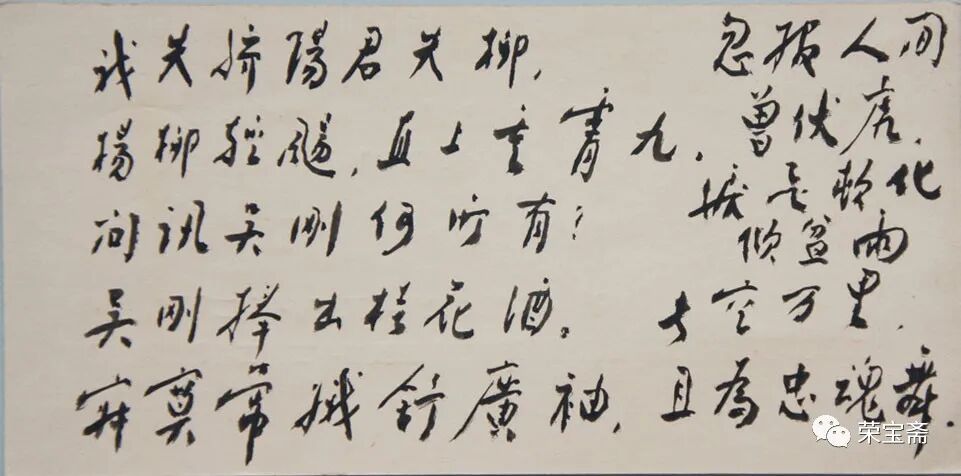 我失骄陽君失柳,
楊柳轻颺,直上重霄九,
问讯吴刚何所有?
吴刚捧出桂花酒。
寂寞常娥舒廣袖,
忽报人间
曾伏虎,
淚飞顿化
倾盆雨
长空万里,
且為忠魂舞.
荣宝斋